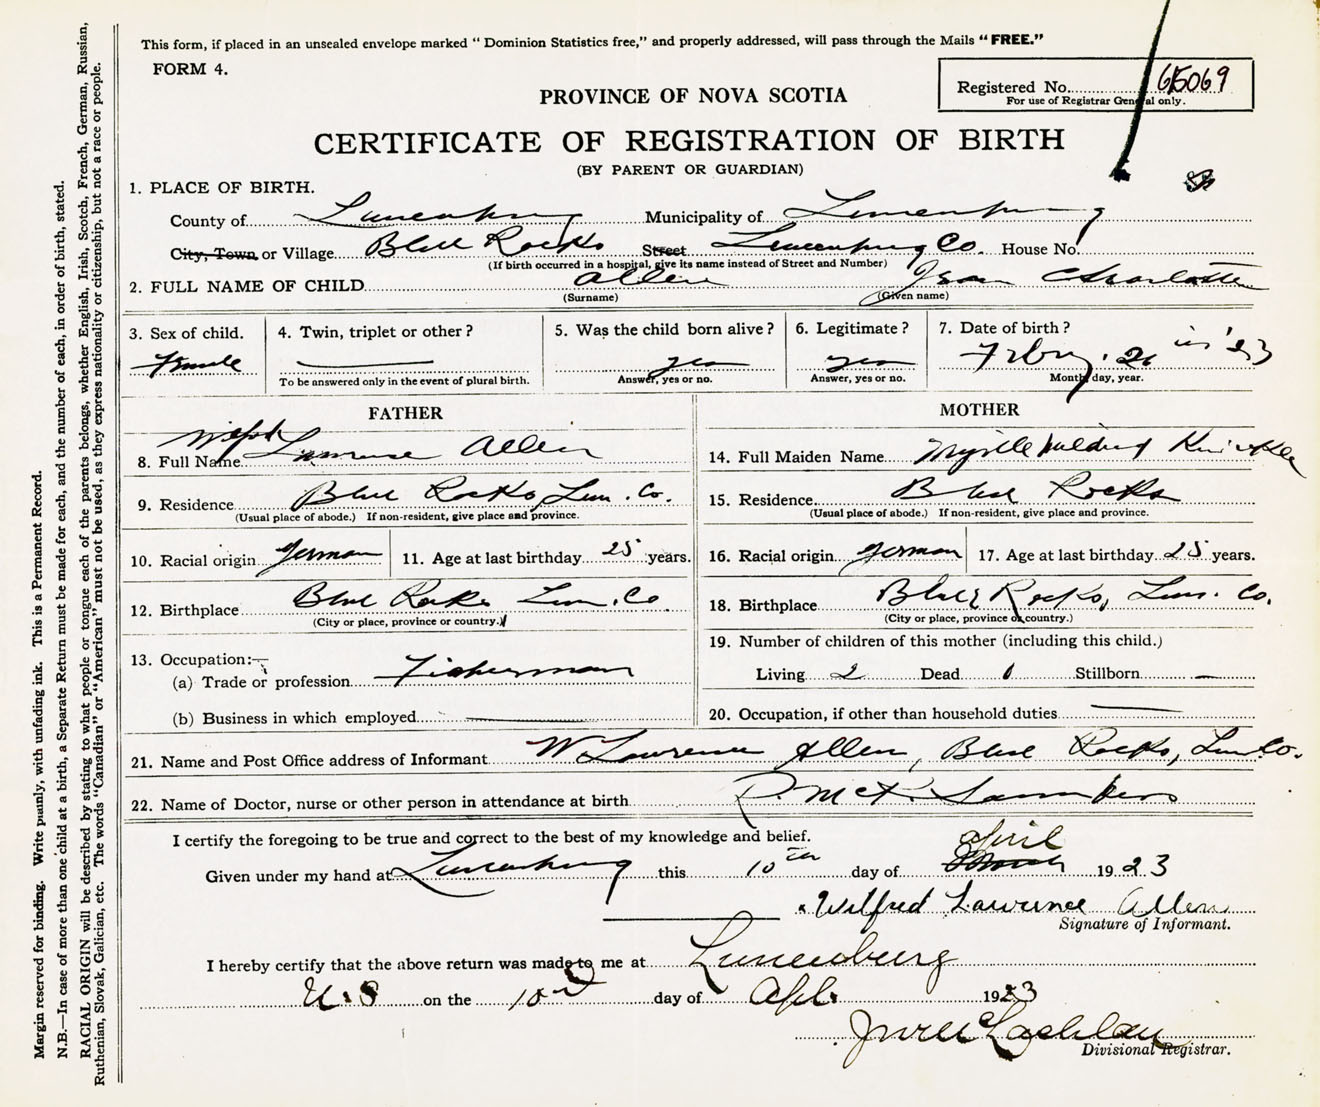 This form, if placed in an unsealed envelope marked “ Dominion Statistics free,” and properly addressed, will pass through the Mails “ FREE.”
FORM 4.
Registered No. 65069
For use of Registrar General only.
PROVINCE OF NOVA SCOTIA
CERTIFICATE OF REGISTRATION OF BIRTH
(BY PARENT OR GUARDIAN)
1. PLACE OF BIRTH.
County of Lunenburg Municipality of Lunenburg
City, Town or Village Blue Rocks Street Lunenburg Co. House No.
(If birth occurred in a hospital, give its name instead of Street and Number)
2. FULL NAME OF CHILD Allen Jean Charlotte
(Surname) (Given name)
3. Sex of child. 4. Twin, triplet or other ? 5. Was the child born alive ? 6. Legitimate ? 7. Date of birth ?
Female yes yes Febry. '23
To be answered only in the event of plural birth. Answer, yes or no. Answer, yes or no. Month, day, year.
FATHER MOTHER
8. Full Name Lawrence Allen
14. Full Maiden Name Myrtle Mildred
9. Residence Blue Rocks, Lun. Co.
(Usual place of abode.) If non-resident, give place and province.
15. Residence Blue Rocks
(Usual place of abode.) If non-resident, give place and province.
10. Racial origin German 11. Age at last birthday 25 years.
16. Racial origin German 17. Age at last birthday 25 years.
12. Birthplace Blue Rocks Lun. Co
(City or place, province or country.)
18. Birthplace Blue Rocks, Lun. Co.
(City or place, province or country.)
13. Occupation:—
(a) Trade or profession Fisherman
(b) Business in which employed
19. Number of children of this mother (including this child.)
Living 2 Dead Stillborn —
20. Occupation, if other than household duties
21. Name and Post Office address of Informant W. Lawrence Allen, Blue Rocks, Lun Co.
22. Name of Doctor, nurse or other person in attendance at birth R. McK. Saunders
I certify the foregoing to be true and correct to the best of my knowledge and belief.
April
Given under my hand at Lunenburg this 10th day of March 1923
Wilfred Lawrence Allen
Signature of Informant.
I hereby certify that the above return was made to me at Lunenburg
N.S on the 10th day of Apl. 1923
McLachlan
Divisional Registrar.
Margin reserved for binding. Write plainly, with unfading ink. This is a Permanent Record.
N.B.—In case of more than one child at a birth, a Separate Return must be made for each, and the number of each, in order of birth, stated.
RACIAL ORIGIN will be described by stating to what people or tongue each of the parents belongs, whether English, Irish, Scotch, French, German, Russian,
Ruthenian, Slovak, Galician, etc. The words “Canadian” or “American” must not be used, as they express nationality or citizenship, but not a race or people.